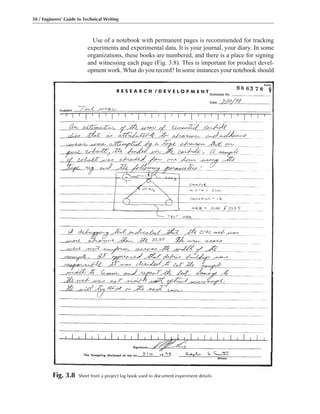 50 / Engineers' Guide to Technical Writing
Use of a notebook with permanent pages is recommended for tracking
experiments and experimental data. It is your journal, your diary. In some
organizations, these books are numbered, and there is a place for signing
and witnessing each page (Fig. 3.8). This is important for product devel-
opment work. What do you record? In some instances your notebook should
RESEARCH / DEVELOPMENT
Notebook No. 886376
Date
PROJECT Tool wear
An estimation of the wear of cemented carbide
disc that is attributable to abrasion and adhesive
wear was attempted by a tape abrasion test on
pure cobalt, the binder in the carbide. A sample
of cobalt was abraded for one hour using the
tape rig and the following parameters:
SAMPLE
TEST WEB
A debugging test indicated that the 2040 web was
more abrasive than the 2035. The wear scars
were not uniform across the width of the
sample. It appeared that debris buildup was
responsible. It was decided to cut the sample
width to 6mm and repeat the test. Damage to
the web was not visible with optical microscope.
We will try that on the next run.
Signature
The foregoing disclosed to me on
Witness
Fig. 3.8 Sheet from a project log book used to document experiment details